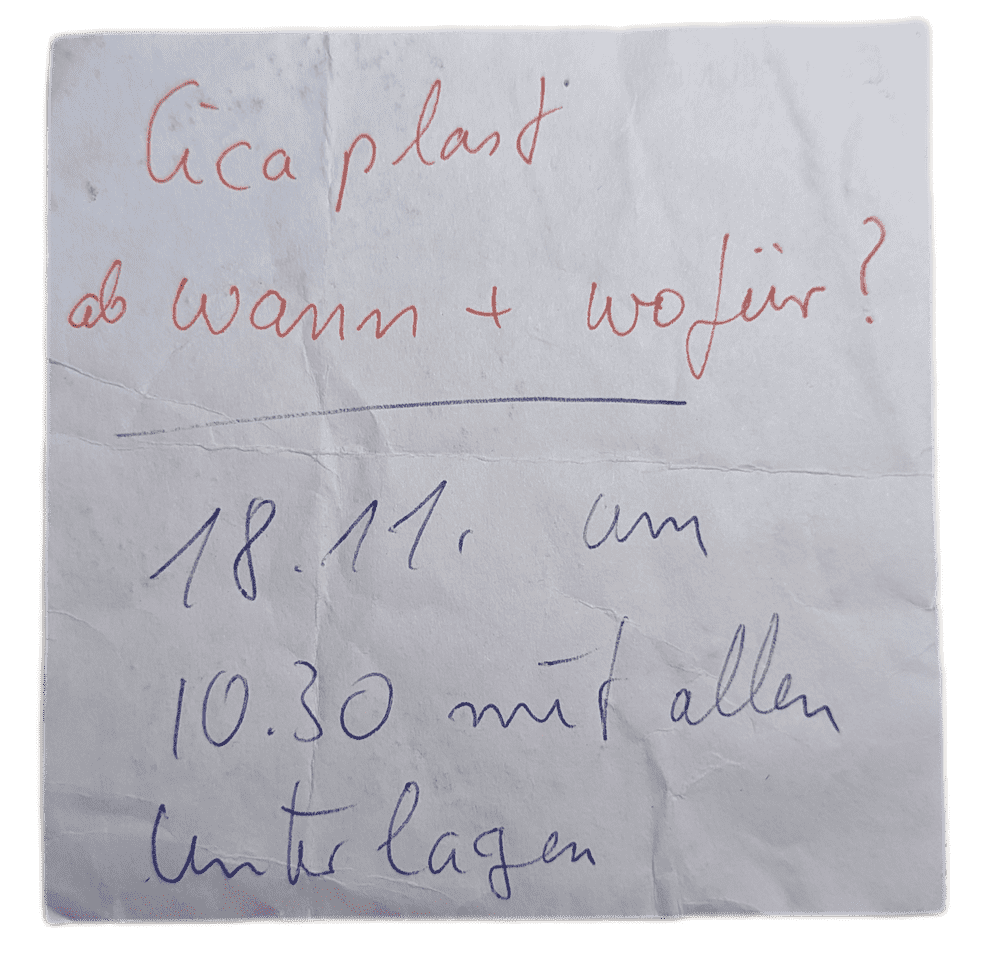 Cica plast
ab wann + wofür?
18.11. um
10.30 mit allen
Unterlagen